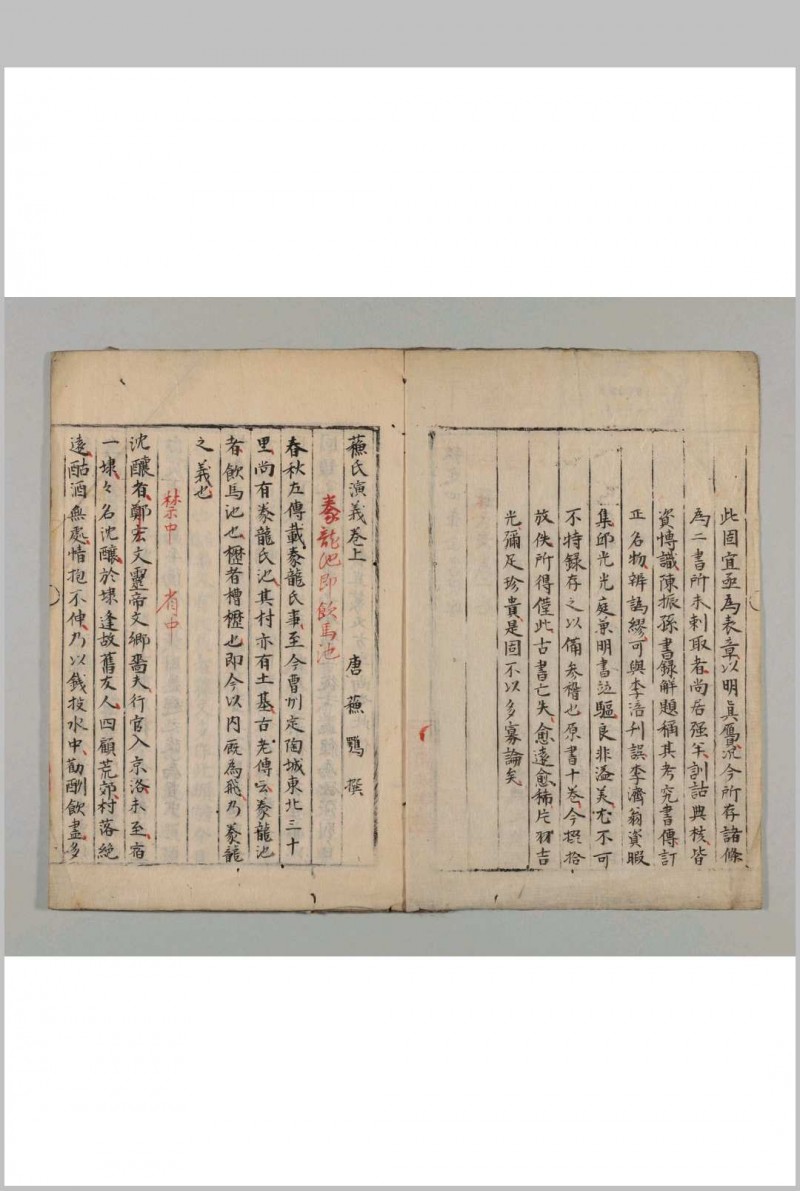 此固宜亟為表章以明真贗況今所存諸條
為二書所未剌取者尚居强半訓詁典核皆
資博識陳振孫書錄解題稱其考究書傳訂
正名物辨訛繆可與李涪刋誤李濟翁資暇
集邱光庭兼明書並驅良非溢美尤不可
不特錄存之以備參稽也原書十卷今掇拾
放佚所得僅此古書亡失愈遠愈稀片羽吉
光彌足珍貴是固不以多寡論矣
蘇氏演義卷上
唐 蘇鶚 撰
豢龍池即飲馬池
春秋左傳載豢龍氏事至今曹州定陶城東北三十
里尚有豢龍氏池其村亦有土基古老傳云豢龍池
者飲馬池也櫪者槽櫪也即今以内厩為飛乃豢龍
之義也
禁中 省中
沈釀者鄭宏文靈帝文鄉嗇夫行官入京洛未至宿
一埭々名沈釀於埭逢故舊友人四顧荒郊村落絶
遠酤酒無處情抱不伸乃以錢投水中勸酬飲盡多